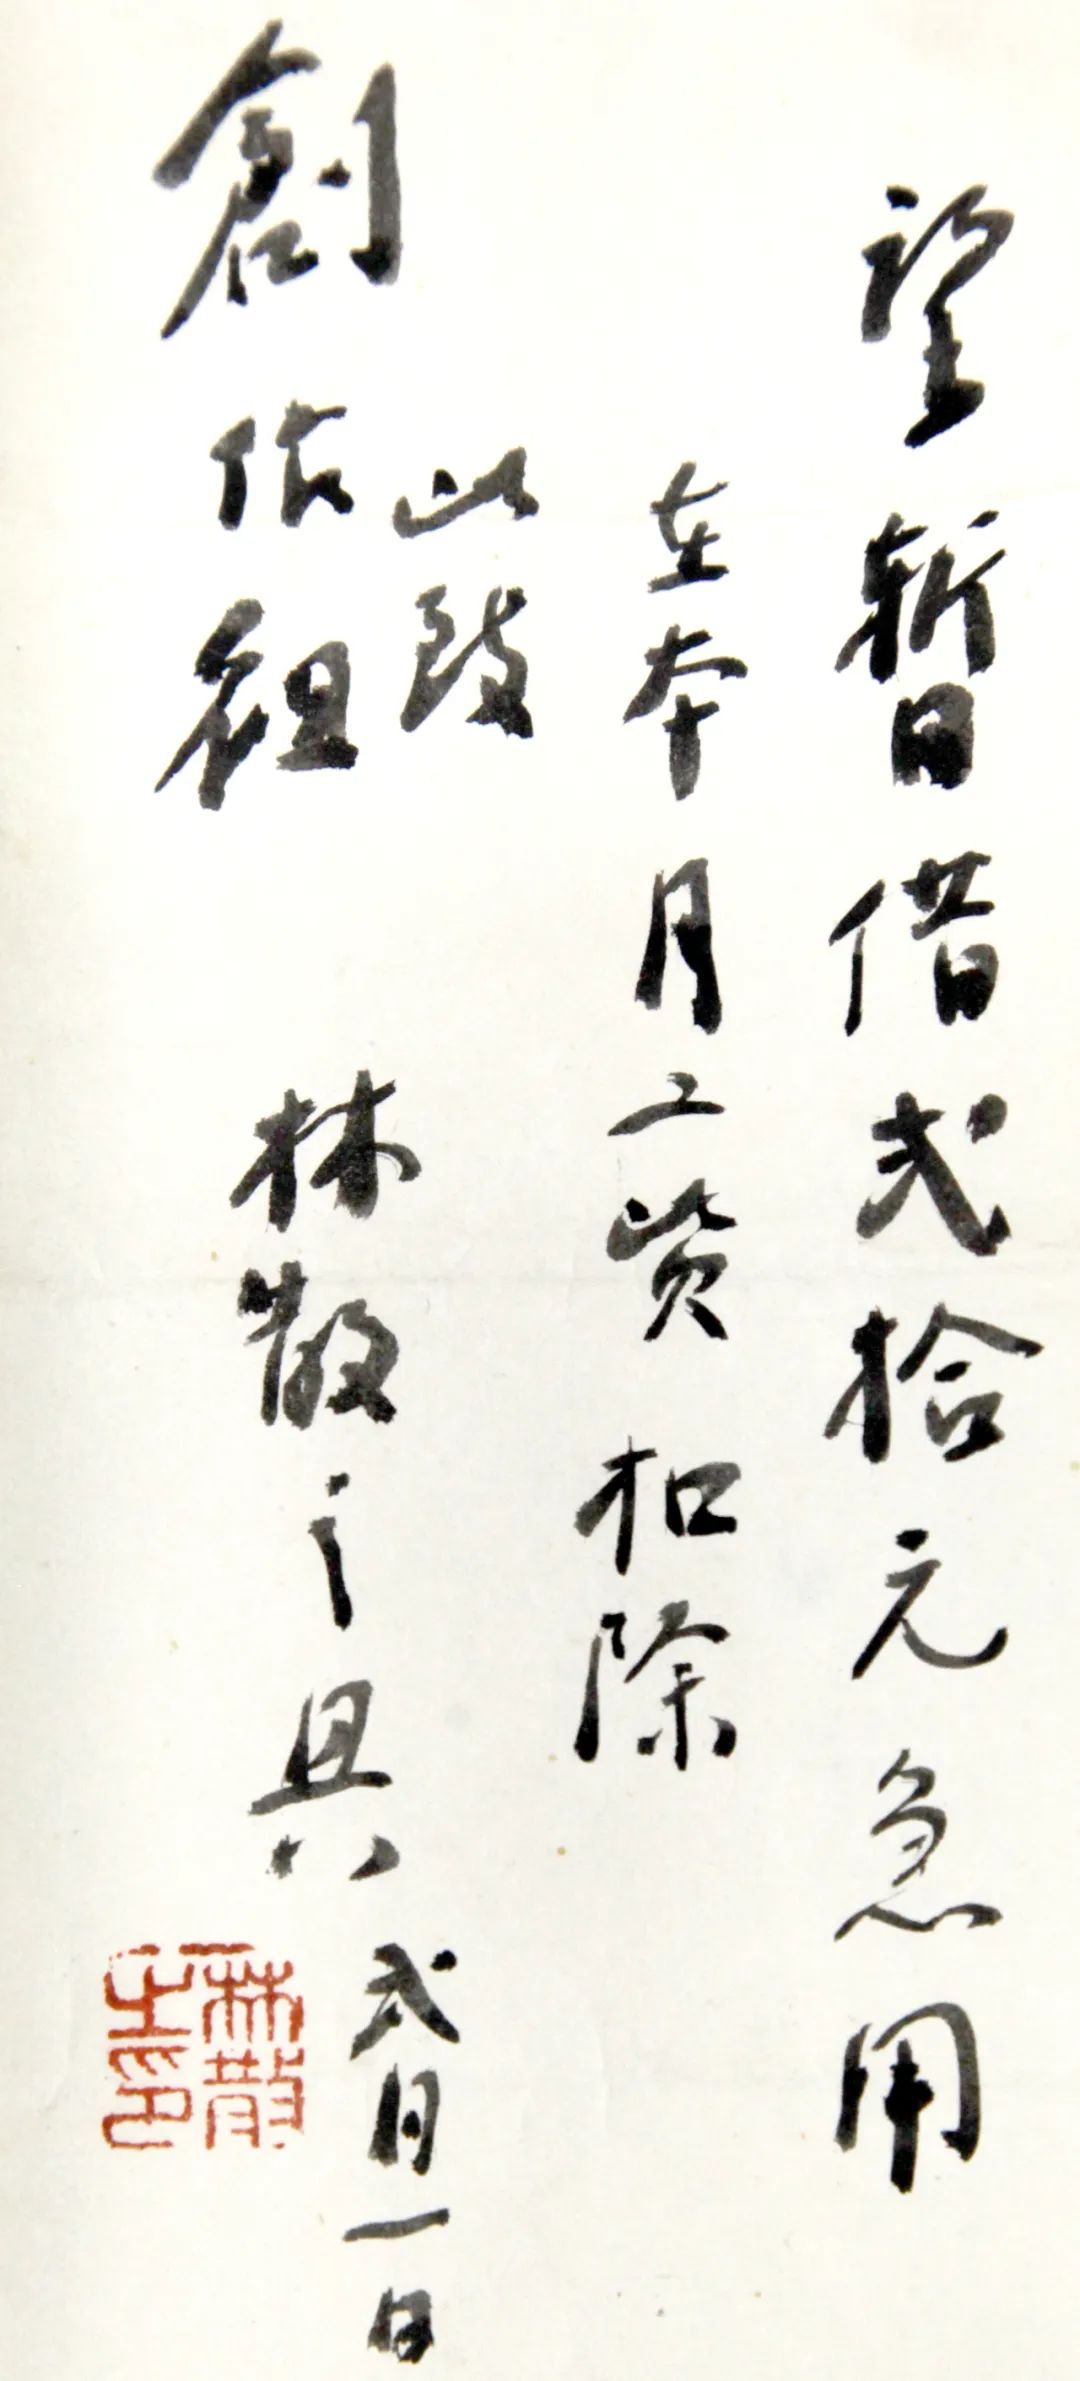 望暫借弍拾元急用
在本月工资扣除
此致
創作組
林散之具
弍月一日
林散之印